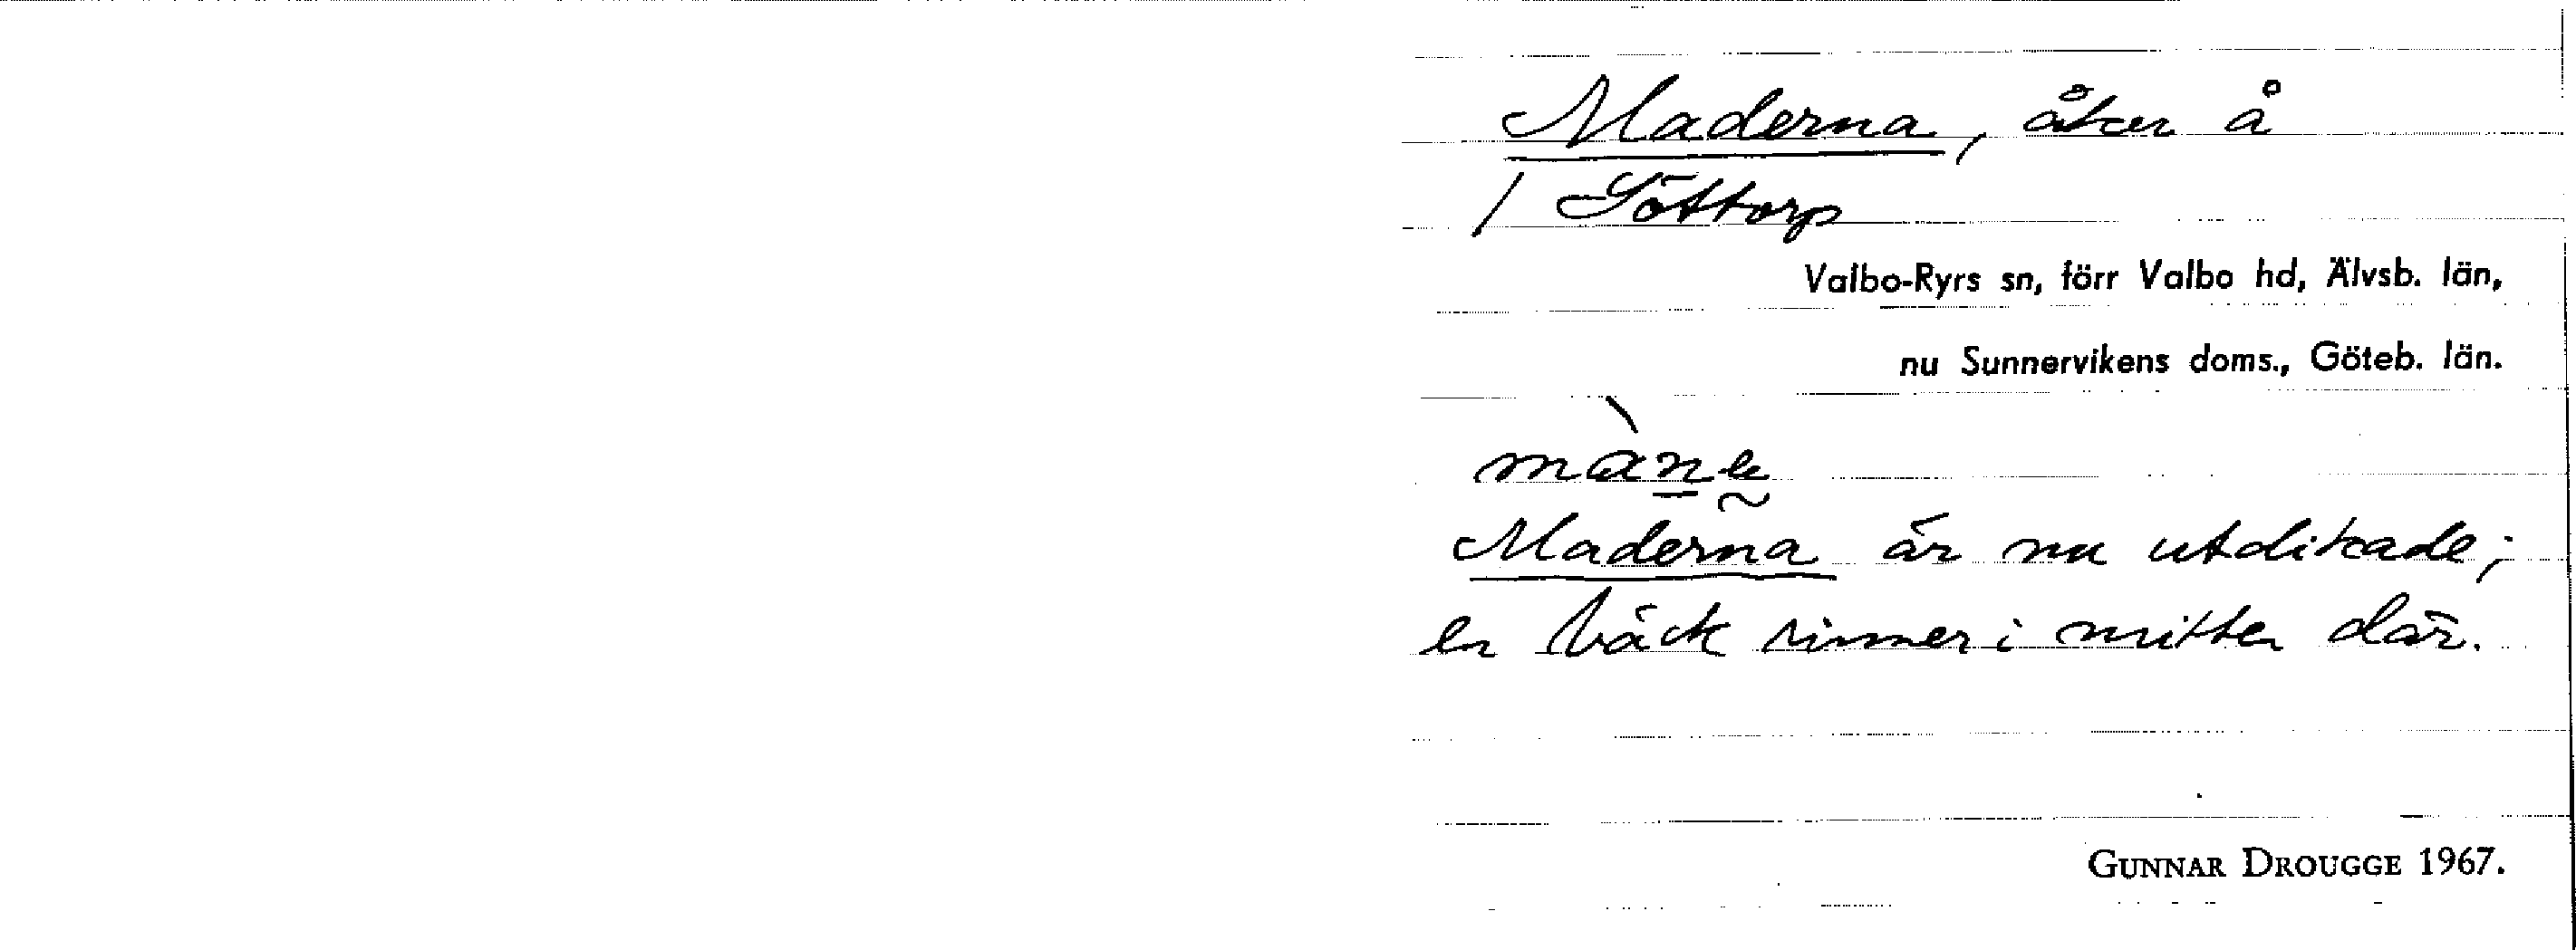 Maderna, åker å
/ Söttorp
Valbo-Ryrs sn, förr Valbo hd, Älvsb. län,
nu Sunnervikens doms., Göteb. län.
Maderna är nu utdikade;
en bäck rinner i mitten där.
GUNNAR DROUGGE 1967.